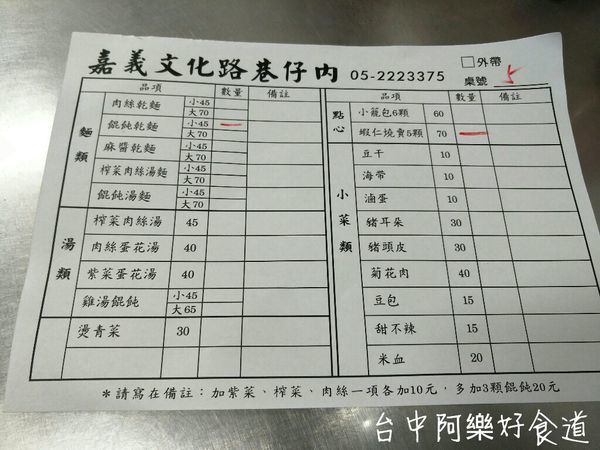 嘉義文化路巷仔內 05-2223375
□外帶
桌號 5
品項 數量 備註
麵類
肉絲乾麵 小45 大70
餛飩乾麵 小45 大70
麻醬乾麵 小45 大70
榨菜肉絲湯麵 小45 大70
餛飩湯麵 小45 大70
湯類
榨菜肉絲湯 45
肉絲蛋花湯 40
紫菜蛋花湯 40
雞湯餛飩 小45 大65
燙青菜 30
品項 數量 備註
點心
小籠包6顆 60
蝦仁燒賣5顆 70
小菜類
豆干 10
海帶 10
滷蛋 10
豬耳朵 30
豬頭皮 30
菊花肉 40
豆包 15
甜不辣 15
米血 20
*請寫在備註：加紫菜、榨菜、肉絲一項各加10元，多加3顆餛飩20元
台中阿樂好食道